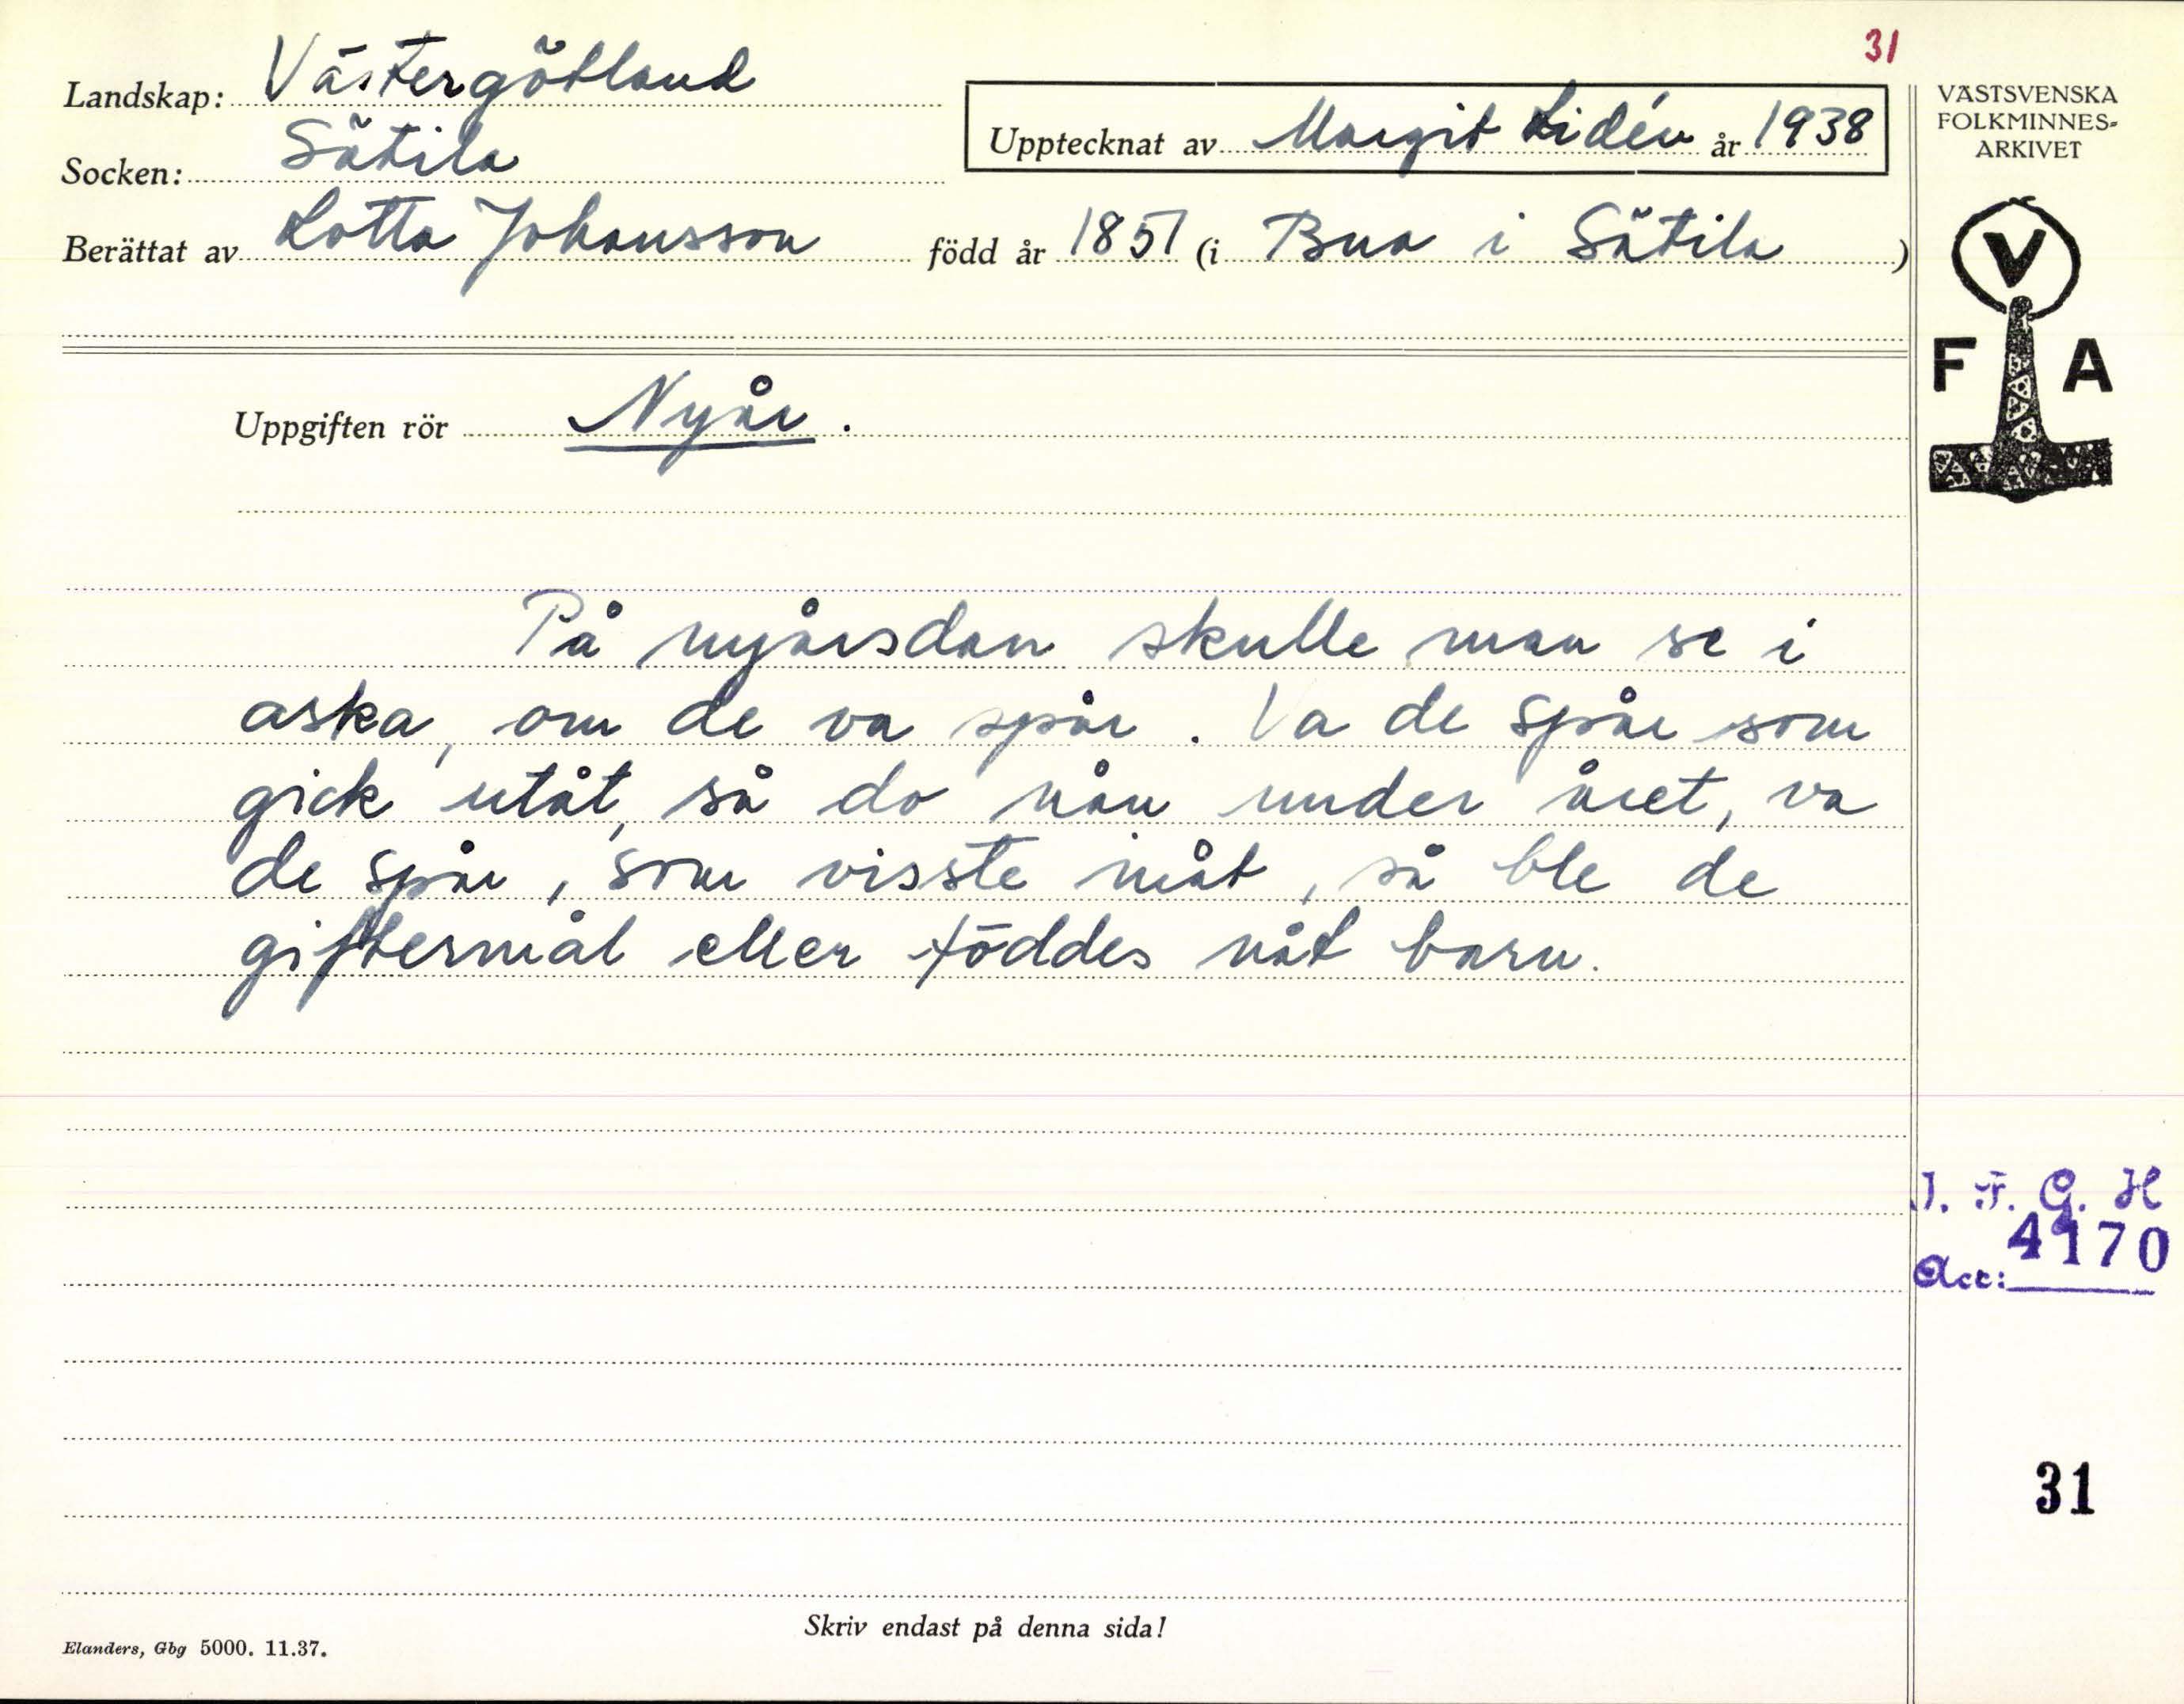 31
Landskap: Västergötland
Socken: Sätila
Berättat av Lotta Johansson född år 1851 (i Bua i Sätila)
Upptecknat av Margit Lidén år 1938
VÄSTSVENSKA
FOLKMINNES-
ARKIVET
V
F A
Uppgiften rör Nyår.
På nyårsdan skulle man se i
aska, om de va spår. Va de spår som
gick utåt, så do nån under året, va
de spår, som visste inåt, så ble de
giftermål eller föddes nåt barn.
I. F. G. H
4170
Acc:
31
Skriv endast på denna sida!
Elanders, Gbg 5000. 11.37.